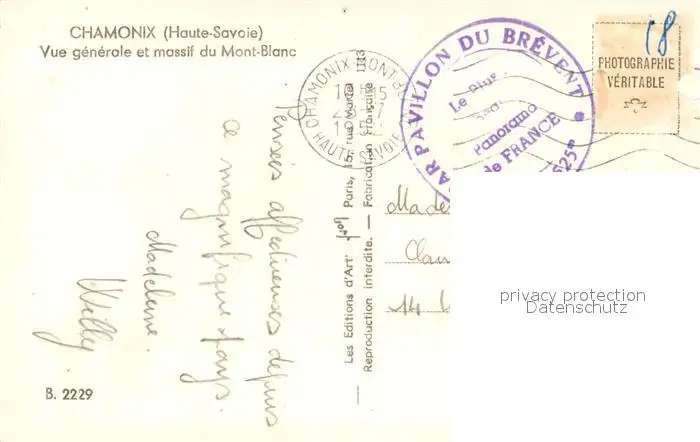 CHAMONIX (Haute-Savoie)
Vue générale et massif du Mont-Blanc
Pensées affectueuses depuis
ce magnifique pays.
Madeleine.
Willy
B. 2229
Les Editions d'Art Paris, 15, rue Martel
Reproduction interdite. — Fabrication Française
CHAMONIX MONT-B
HAUTE SAVOIE
PAVILLON DU BRÉVENT
Le Plus
Panorama
de FRANCE
2525m
18
PHOTOGRAPHIE
VÉRITABLE
Made
14
privacy protection
Datenschutz